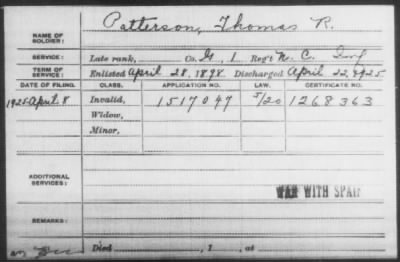 NAME OF SOLDIER: Patterson, Thomas R.
SERVICE: Late rank, Co. G, 1 Reg't N. C. Inf
TERM OF SERVICE: Enlisted April 28, 1898. Discharged April 22,
DATE OF FILING. CLASS. APPLICATION NO. LAW. CERTIFICATE NO.
1925 April 8 Invalid, 1517047 5/20 1268363
Widow,
Minor,
ADDITIONAL SERVICES:
WAR WITH SPAIN
REMARKS:
Died , 1 , at